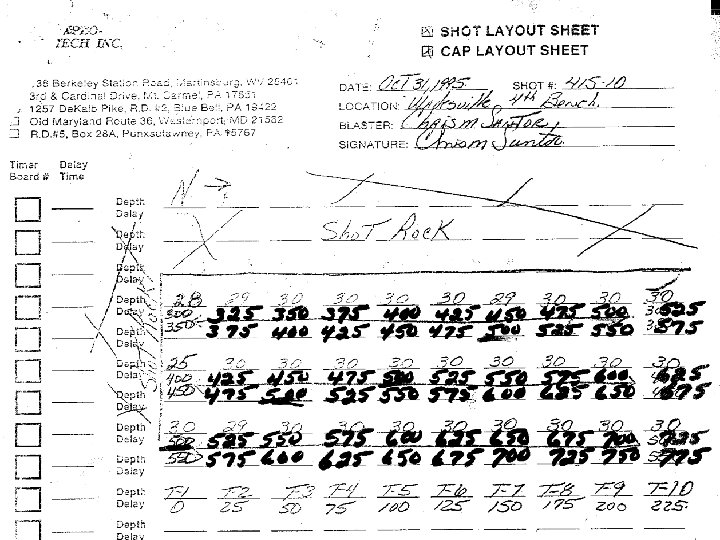 TECH INC.
☒ SHOT LAYOUT SHEET
☒ CAP LAYOUT SHEET
Berkeley Station Road, Martinsburg, WV 25401
3rd & Cardinal Drive, Mt. Carmel, PA 17851
1257 DeKalb Pike, R.D. #2, Blue Bell, PA 19422
Old Maryland Route 36, Westernport, MD 21562
R.D.#5, Box 28A, Punxsutawney, PA 15767
DATE: Oct 31, 1995 SHOT #: 415-10
LOCATION: 4th Bench.
BLASTER:
SIGNATURE:
Timer Delay
Board # Time
N →
Depth
Delay
Depth SHOT ROCK
Delay
Depth
Delay
Depth 28 29 30 30 30 30 29 30 30 30
Delay 300 325 350 375 400 425 450 475 500 525
Depth 350 375 400 425 450 475 500 525 550 575
Delay
Depth 25 30 30 30 30 30 30 30 30 30
Delay 400 425 450 475 500 525 550 575 600 625
Depth 450 475 500 525 550 575 600 625 650 675
Delay
Depth 30 29 30 30 30 30 30 30 30 30
Delay 500 525 550 575 600 625 650 675 700 725
Depth 550 575 600 625 650 675 700 725 750 775
Delay
Depth T-1 T-2 T-3 T-4 T-5 T-6 T-7 T-8 T-9 T-10
Delay 0 25 50 75 100 125 150 175 200 225
Depth
Delay